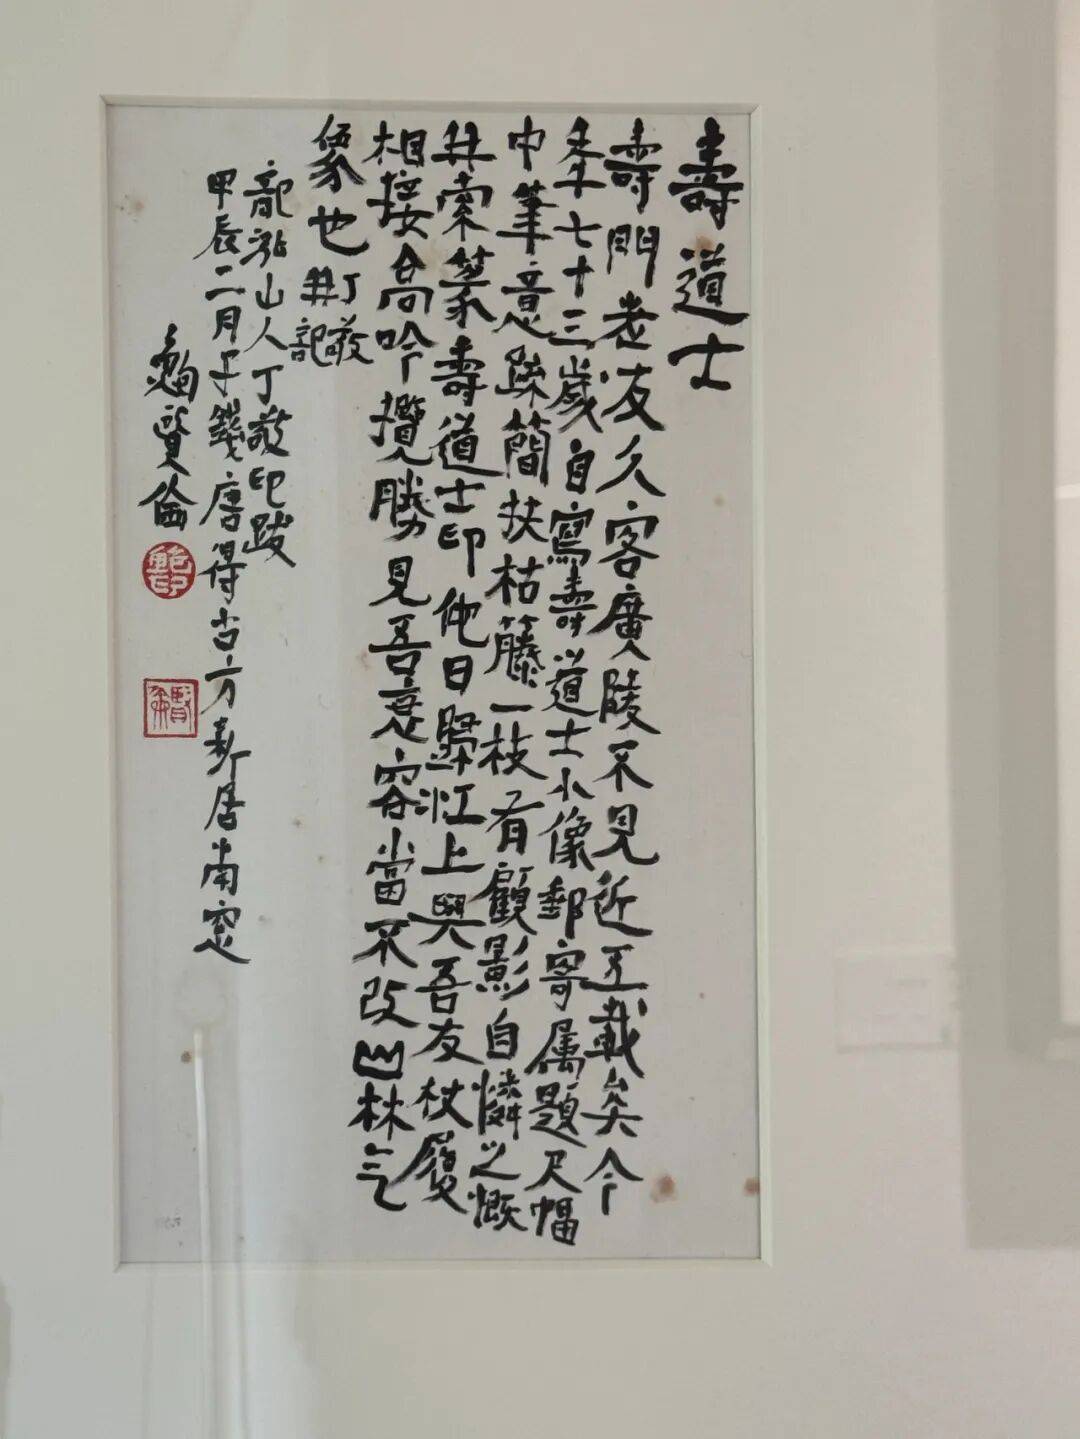 壽道士
壽門老友久客廣陵不見近五載矣今
年七十三歲自寫壽道士小像郵寄属題尺幅
中筆意疏簡扶枯籐一枝有顧影自憐之慨
并索篆壽道士印他日歸江上與吾友杖履
相接高吟攬勝見吾衰容當不改山林气
象也丁敬
并記
龍泓山人丁敬印跋
甲辰二月于錢唐得古方新居南窗
鮑賢倫
鮑印
賢倫